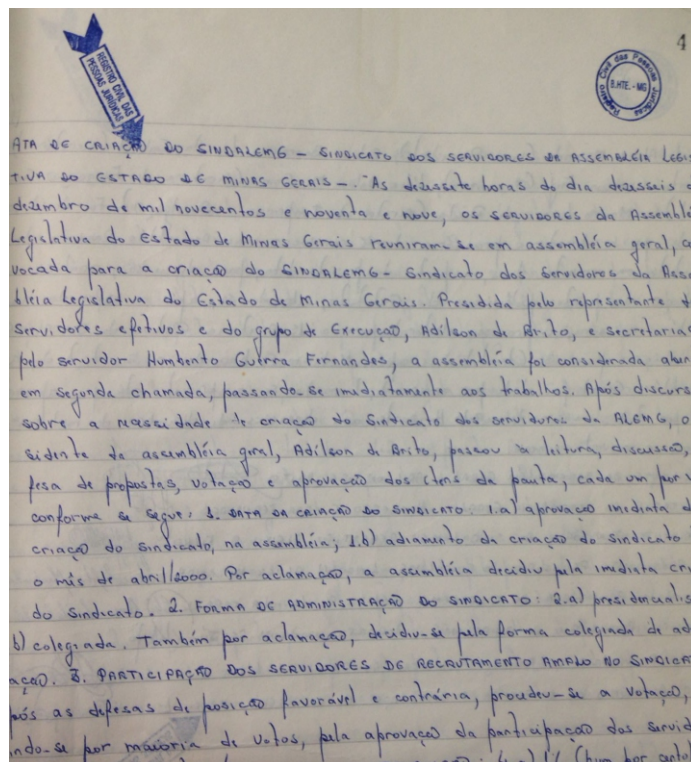 4
REGISTRO CIVIL DAS
PESSOAS JURÍDICAS
Registro Civil das Pessoas Jurídicas
B.HTE. - MG
ATA DE CRIAÇÃO DO SINDALEMG - SINDICATO DOS SERVIDORES DA ASSEMBLÉIA LEGIS
TIVA DO ESTADO DE MINAS GERAIS -. Às dezessete horas do dia dezesseis
dezembro de mil novecentos e noventa e nove, os servidores da Assemblé
Legislativa do Estado de Minas Gerais reuniram-se em assembléia geral,
vocada para a criação do SINDALEMG - Sindicato dos Servidores da Asse
bléia Legislativa do Estado de Minas Gerais. Presidida pelo representante
servidores efetivos e do grupo de Execução, Adilson de Brito, e secretaria
pelo servidor Humberto Guerra Fernandes, a assembléia foi considerada
em segunda chamada, passando-se imediatamente aos trabalhos. Após discurs
sobre a necessidade de criação do Sindicato dos servidores da ALEMG, o
sidente da assembléia geral, Adilson de Brito, passou à leitura, discussão,
fesa de propostas, votação e aprovação dos itens da pauta, cada um por
conforme se segue: 1. DATA DA CRIAÇÃO DO SINDICATO: 1.a) aprovação imediata d
criação do sindicato, na assembléia; 1.b) adiamento da criação do sindicato
o mês de abril/2000. Por aclamação, a assembléia decidiu pela imediata cri
do sindicato. 2. FORMA DE ADMINISTRAÇÃO DO SINDICATO: 2.a) presidencialis
b) colegiada. Também por aclamação, decidiu-se pela forma colegiada de ad
ação. 3. PARTICIPAÇÃO DOS SERVIDORES DE RECRUTAMENTO AMPLO NO SINDICA
pós as defesas de posição favorável e contrária, procedeu-se a votação,
indo-se por maioria de votos, pela aprovação da participação dos servid